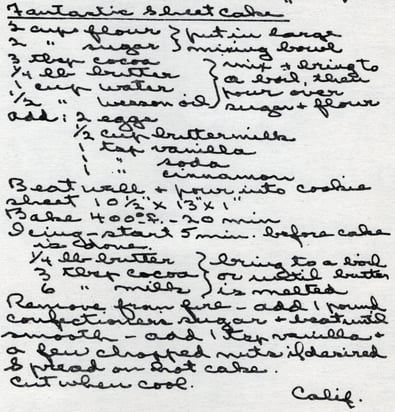 Fantastic Sheet Cake
2 cups flour } put in large
2 " sugar } mixing bowl
3 tbsp cocoa } mix + bring to
1/4 lb butter } a boil, then
1 cup water } pour over
1/2 " wesson oil } sugar + flour
add: 2 eggs
1/2 cup buttermilk
1 tsp vanilla
1 " soda
1 " cinnamon
Beat well + pour into cookie
sheet 10 1/2" x 13" x 1"
Bake 400° F. - 20 min
Icing - start 5 min. before cake
is done.
1/4 lb butter } bring to a boil
3 tbsp cocoa } or until butter
6 " milk } is melted
Remove from fire - add 1 pound
confectioners sugar + beat until
smooth - add 1 tsp vanilla +
a few chopped nuts if desired
Spread on hot cake.
Cut when cool.
Calif.